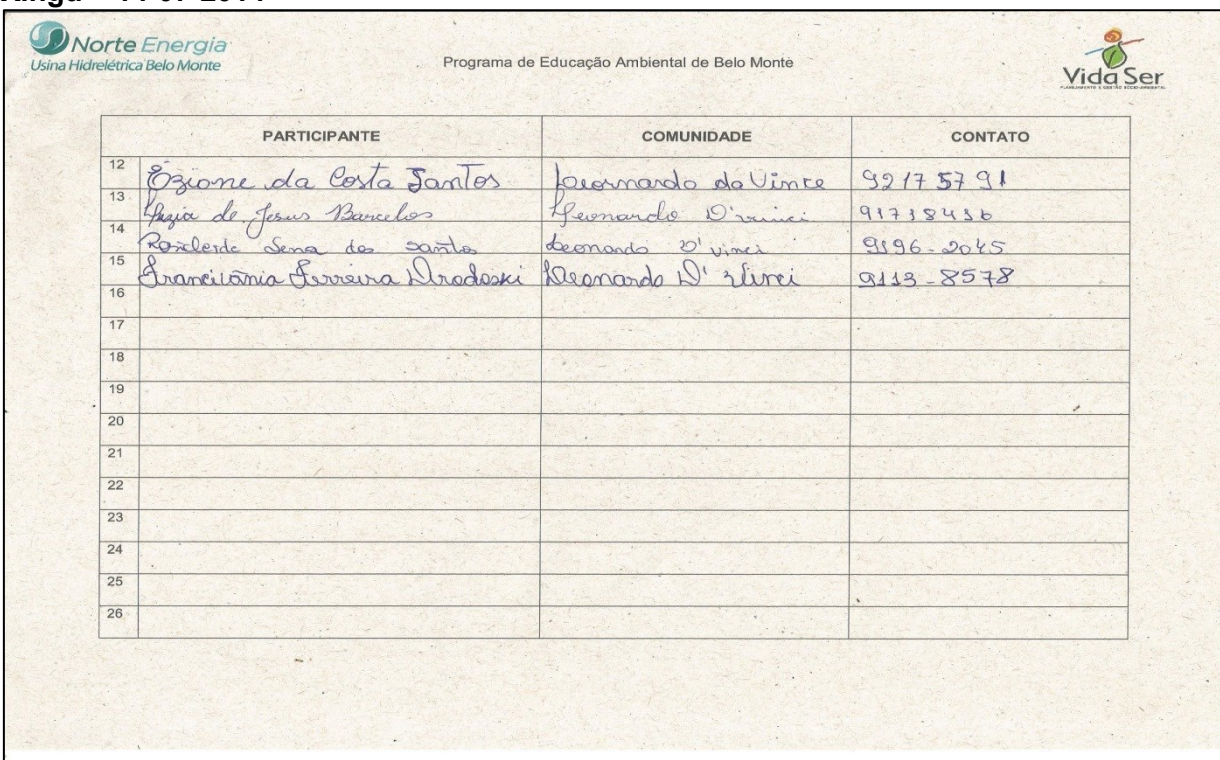 Norte Energia
Usina Hidrelétrica Belo Monte
Programa de Educação Ambiental de Belo Monte
Vida Ser
PLANEJAMENTO E GESTÃO SÓCIO-AMBIENTAL
PARTICIPANTE COMUNIDADE CONTATO
12 Ozione da Costa Santos Leornardo da Vince 92175791
13 Luzia de Jesus Barcelos Leonardo D'vinci 91738436
14 Sena dos santos Leonardo D'vinci 9196-2045
15 Ferreira Leonardo D' Vinci 9113-8578
16
17
18
19
20
21
22
23
24
25
26